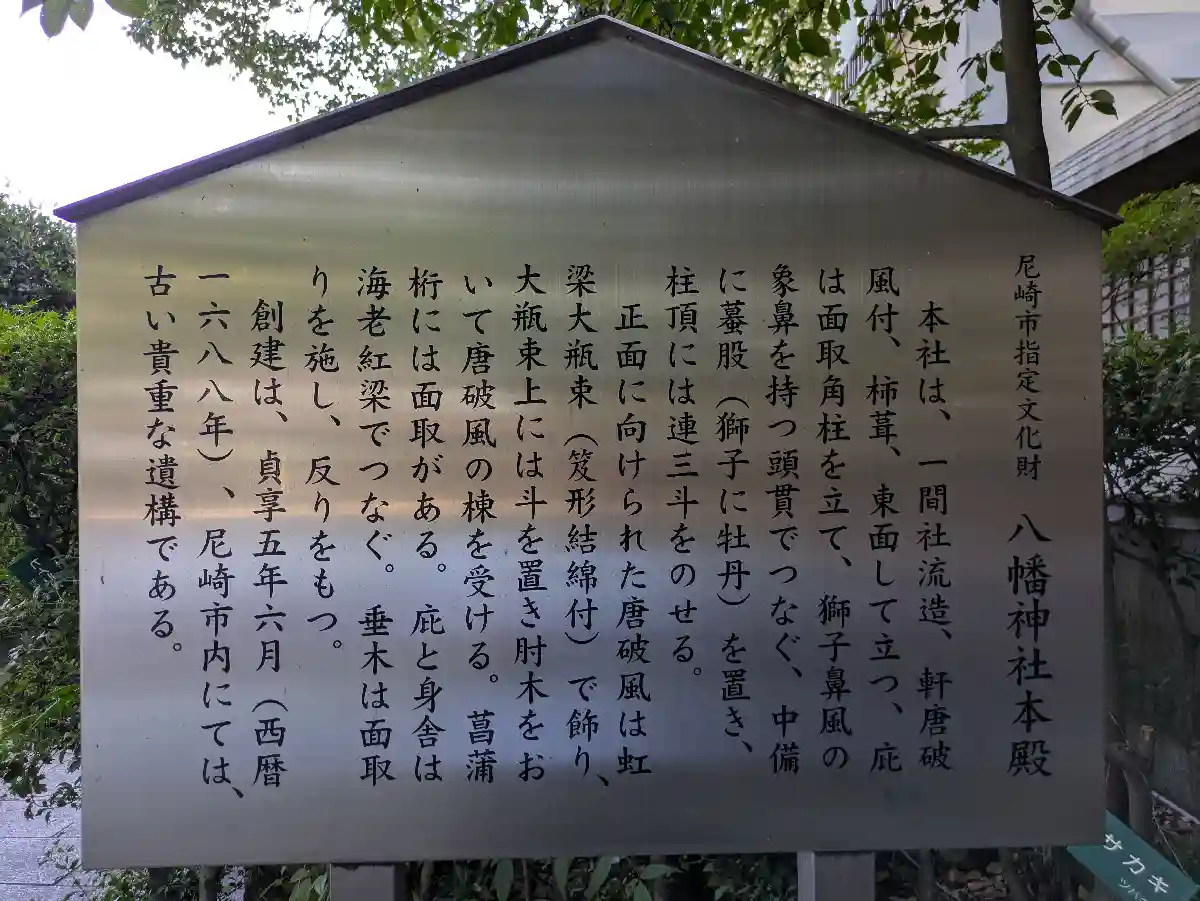 尼崎市指定文化財 八幡神社本殿
本社は、一間社流造、軒唐破
風付、柿葺、東面して立つ、庇
は面取角柱を立て、獅子鼻風の
象鼻を持つ頭貫でつなぐ、中備
に蟇股（獅子に牡丹）を置き、
柱頂には連三斗をのせる。
正面に向けられた唐破風は虹
梁大瓶束（笈形結綿付）で飾り、
大瓶束上には斗を置き肘木をお
いて唐破風の棟を受ける。菖蒲
桁には面取がある。庇と身舎は
海老紅梁でつなぐ。垂木は面取
りを施し、反りをもつ。
創建は、貞享五年六月（西暦
一六八八年）、尼崎市内にては、
古い貴重な遺構である。
サカキ